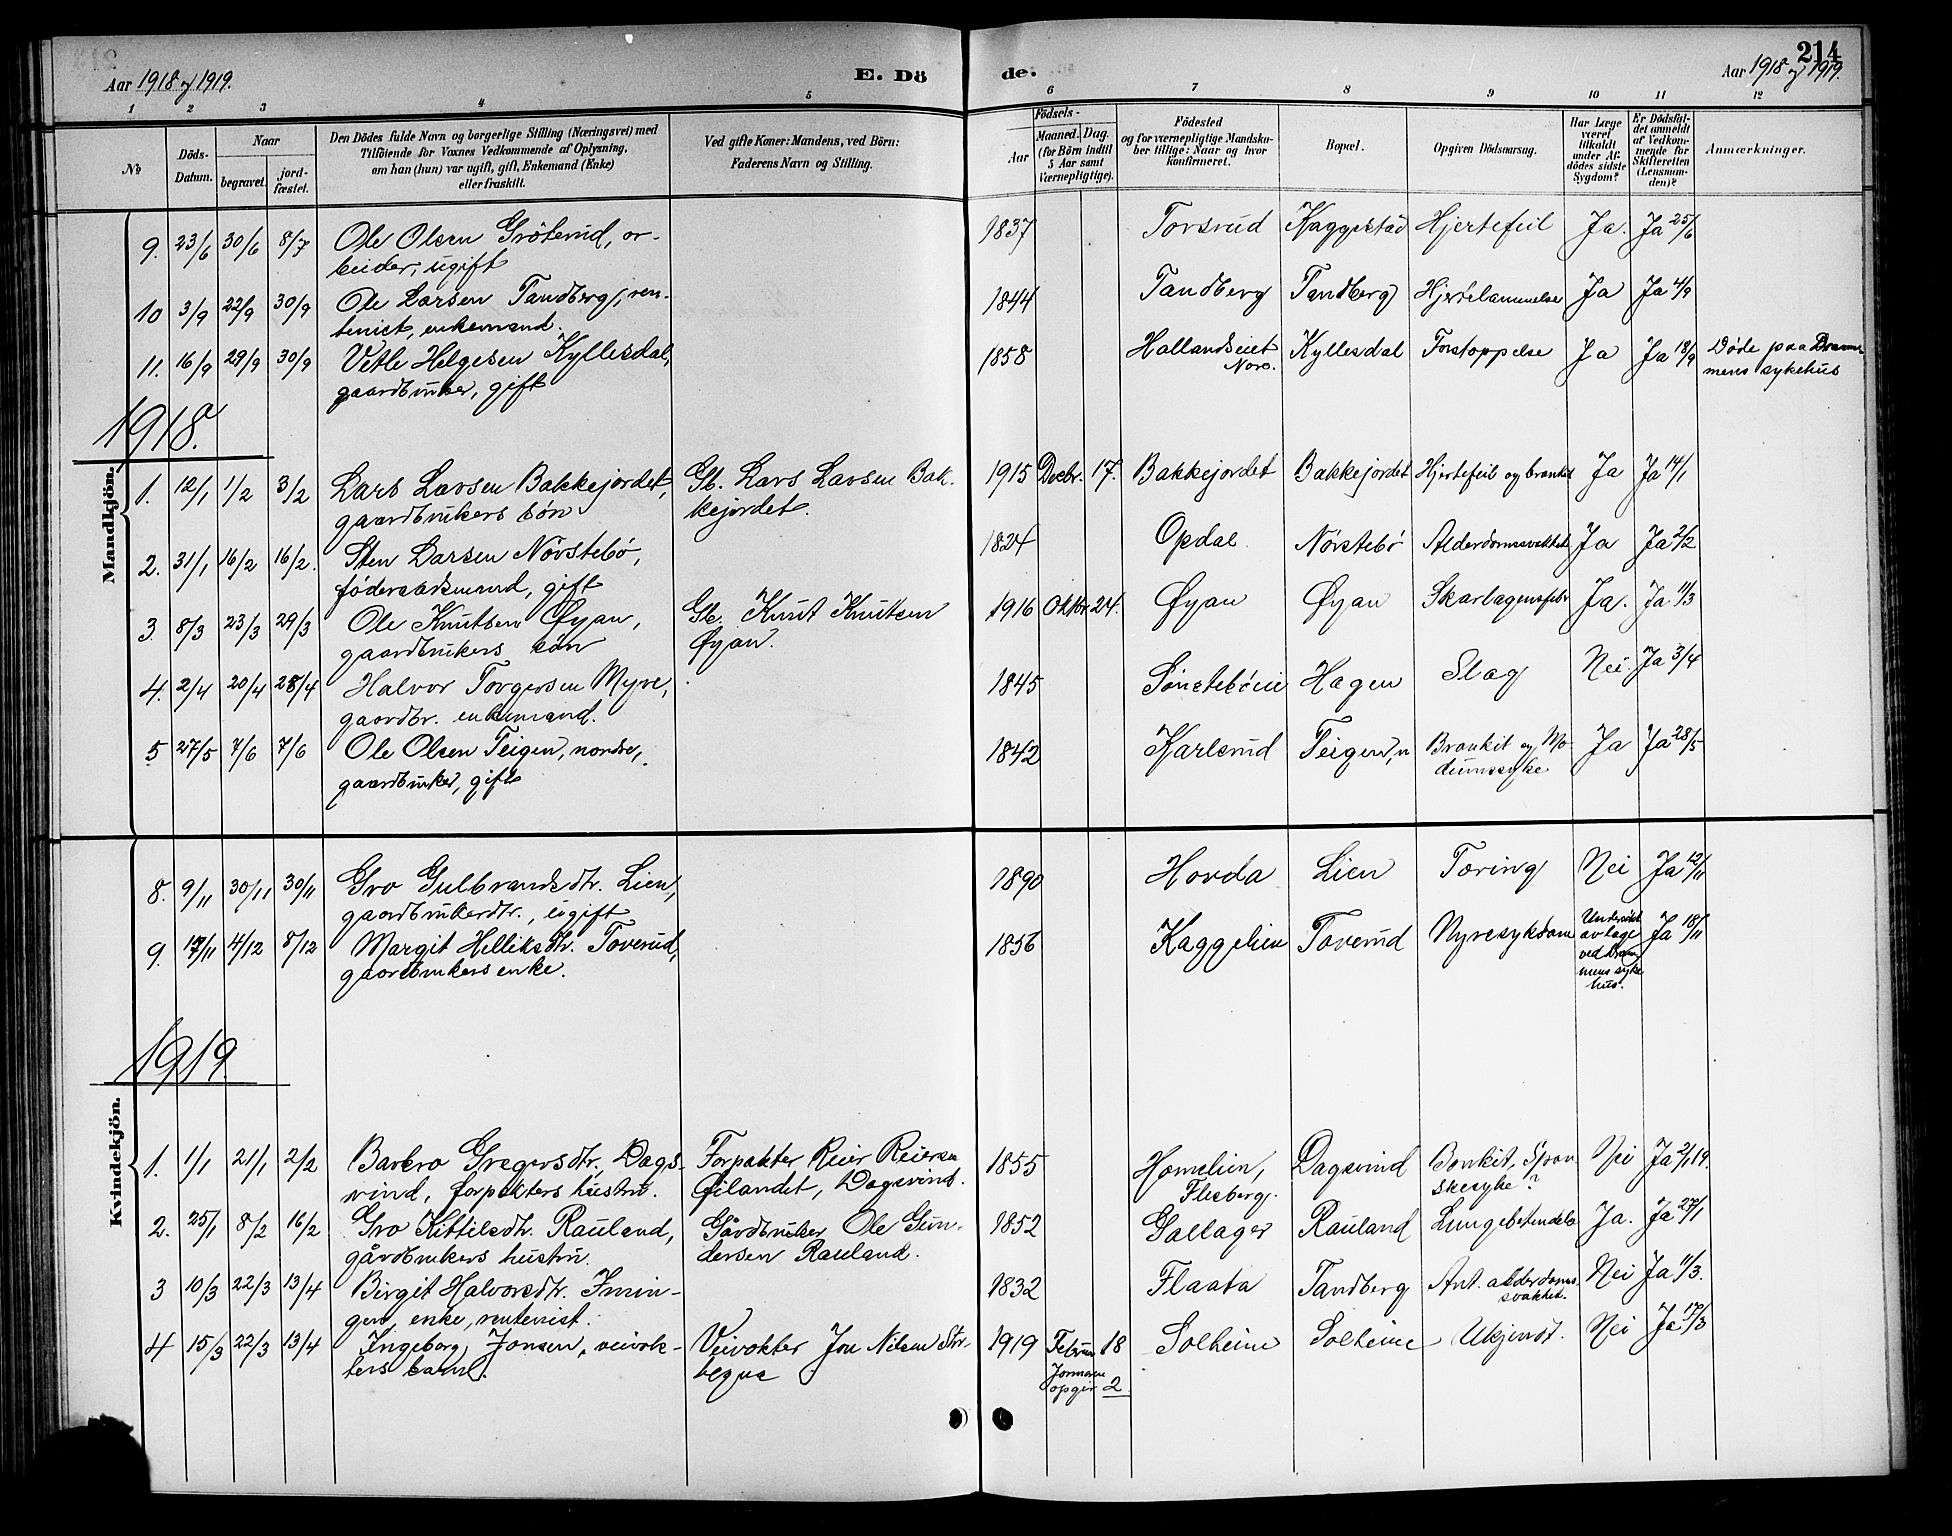 214
Aar 1918 og 1919.
E. Dö
de.
Aar 1918 og 1919.
1 2 3 4 5 6 7 8 9 10 11 12
№
Döds-
Datum.
Naar
begravet.
jord-
fæstet.
Den Dödes fulde Navn og borgerlige Stilling (Næringsvei) med
Tilföiende for Voxnes Vedkommende af Oplysning,
om han (hun) var ugift, gift, Enkemand (Enke)
eller fraskilt.
Ved gifte Koner: Mandens, ved Börn:
Faderens Navn og Stilling.
Födsels-
Aar
Maaned. Dag.
(for Börn indtil
5 Aar samt
Værnepligtige).
Födested
og for værnepligtige Mandska-
ber tillige: Naar og hvor
konfirmeret.
Bopæl.
Opgiven Dödsaarsag.
Har Læge
været
tilkaldt
under Af-
dödes sidste
Sygdom?
Er Dödsfal-
det anmeldt
af Vedkom-
mende for
Skifteretten
(Lensman-
den)?
Anmærkninger.
Mandkjön.
9. 23/6 30/6 8/7 Ole Olsen Gröterud, ar- 1837 Torsrud Kaggestad Hjertefeil Ja. Ja 25/6
beider, ugift
10 3/9 22/9 30/9 Ole Larsen Tandberg, ren- 1844 Tandberg Tandberg Hjertelammelse Ja Ja 4/9
tenist, enkemand.
11. 16/9 29/9 30/9 Vetle Helgesen Kyllesdal, 1858 Hallandseiet Kyllesdal Forstoppelse Ja Ja 18/9 Döde paa Dram-
gaardbruker, gift Nore. mens sykehus
1918.
1. 12/1 1/2 3/2 Lars Larsen Bakkejordet, Gb. Lars Larsen Bak- 1915 Decbr. 17. Bakkejordet Bakkejordet Hjertefeil og bronkit Ja Ja 14/1
gaardbrukers sön kejordet.
2. 31/1 16/2 16/2. Sten Larsen Nörstebö, 1824 Opdal Nörstebö Alderdomssvakhet Ja Ja 2/2
föderaadsmand, gift
3. 8/3 23/3 29/3 Ole Knutsen Øyan, Gb. Knut Knutsen 1916 Oktbr 24. Øyan Øyan Skarlagensfeber Ja. Ja 11/3
gaardbrukers sön Øyan.
4. 2/4 20/4 28/4 Halvor Torgersen Myre, 1845 Hagen Slag Nei. Ja 3/4
gaardbr. enkemand.
5 27/5 7/6 7/6 Ole Olsen Teigen, nordre, 1842 Karlsrud Teigen, n Bronkit og Mo- Ja Ja 28/5
gaardbruker, gift diumssyke
Kvindekjön.
8. 9/11 30/11 30/11 Gro Gulbrandsdtr. Lien, 1890 Hovda Lien Toring Nei Ja 12/11
gaardbrukerdtr., ugift
9. 17/11 4/12 8/12 Margit Helliksdtr. Toverud, 1856 Kaggelien Toverud Nyresykdom Undersökt Ja 18/11
gaardbrukers enke. av læge
ved Dram-
mens syke
hus.
1919.
1. 1/1 21/1 2/2 Barbro Gregersdtr. Dags- Forpakter Reier Reiersen 1855 Homelien, Dagsvind Bonkit, Span- Nei Ja 2/1 19.
vind, forpakters hustru. Øilandet, Dagsvind. Flesberg. skesyke?
2. 25/1 8/2 16/2 Gro Kittilsdtr. Rauland, Gårdbruker Ole Gun- 1852 Gallager Rauland Lungebetendelse Ja. Ja 27/1
gårdbrukers hustru. dersen Rauland.
3 10/3 22/3 13/4 Birgit Halvorsdtr. Imin- 1832 Flaata Tandberg Ant. alderdoms- Nei Ja 11/3.
gen, enke, rentenist. svakhet.
4 15/3 22/3 13/4 Ingeborg Jonsen, veivok- Veivokter Jon Nilsen 1919 Februar 18 Solheim Solheim Ukjendt. Nei Ja 17/3
ters barn.
opgir 2.